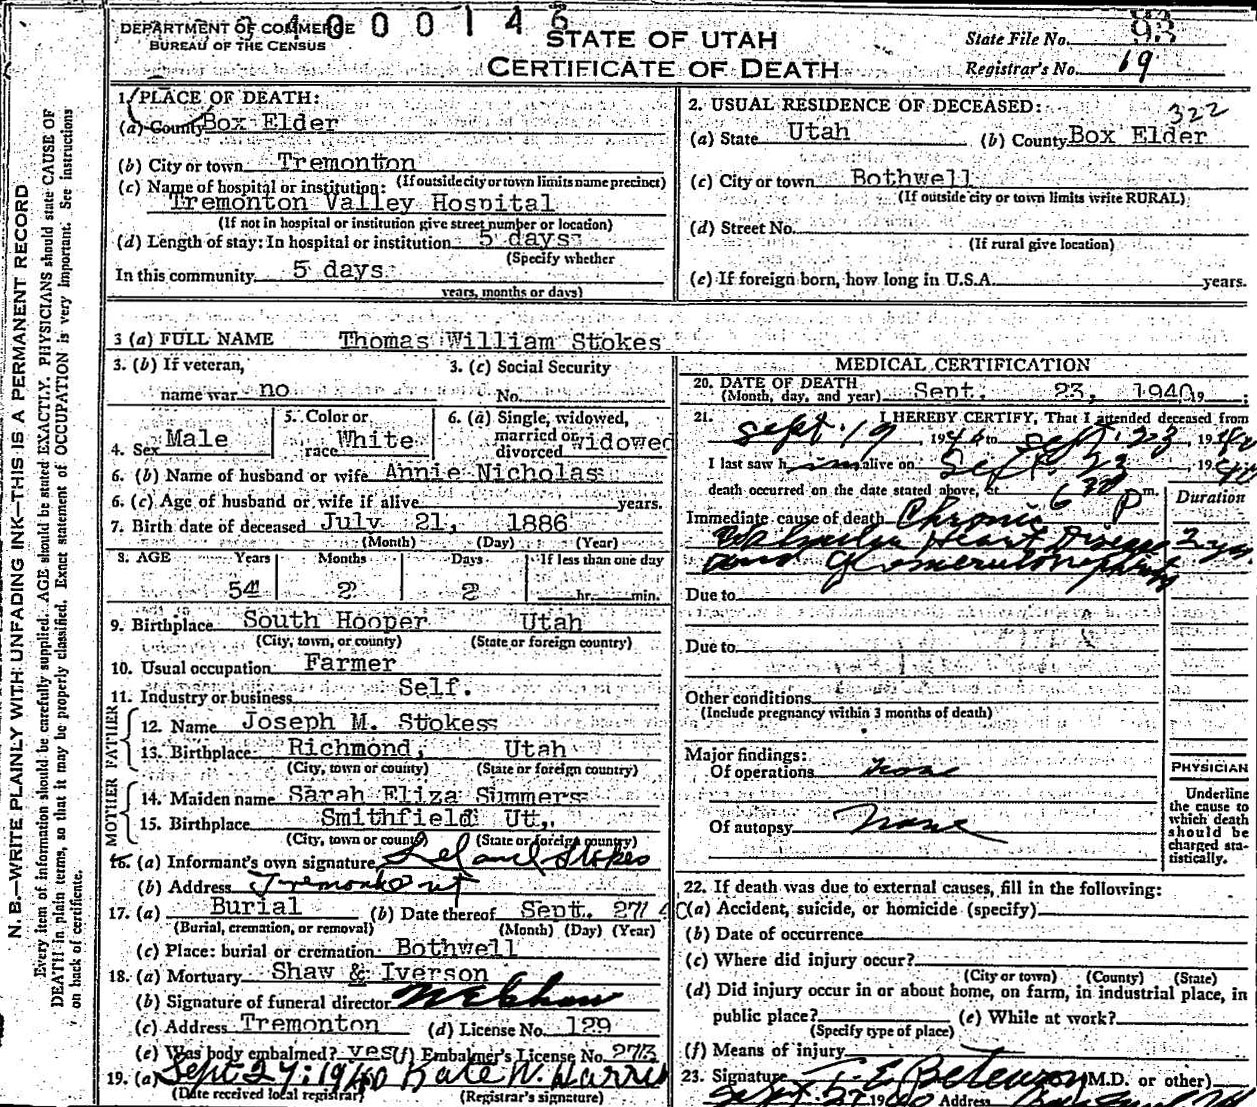 34000146
DEPARTMENT OF COMMERCE
BUREAU OF THE CENSUS
STATE OF UTAH
CERTIFICATE OF DEATH
State File No. 93
Registrar's No. 19
1. PLACE OF DEATH:
(a) County Box Elder
(b) City or town Tremonton
(If outside city or town limits name precinct)
(c) Name of hospital or institution:
Tremonton Valley Hospital
(If not in hospital or institution give street number or location)
(d) Length of stay: In hospital or institution 5 days
(Specify whether
In this community 5 days
years, months or days)
2. USUAL RESIDENCE OF DECEASED:
322
(a) State Utah (b) County Box Elder
(c) City or town Bothwell
(If outside city or town limits write RURAL)
(d) Street No.
(If rural give location)
(e) If foreign born, how long in U.S.A. years.
3 (a) FULL NAME Thomas William Stokes
3. (b) If veteran, name war no
3. (c) Social Security No.
4. Sex Male
5. Color or race White
6. (a) Single, widowed, married or divorced widowed
6. (b) Name of husband or wife Annie Nicholas
6. (c) Age of husband or wife if alive years.
7. Birth date of deceased July 21, 1886
(Month) (Day) (Year)
8. AGE Years Months Days If less than one day
54 2 2 hr. min.
9. Birthplace South Hooper Utah
(City, town, or county) (State or foreign country)
10. Usual occupation Farmer
11. Industry or business Self.
FATHER
12. Name Joseph M. Stokes
13. Birthplace Richmond, Utah
(City, town or county) (State or foreign country)
MOTHER
14. Maiden name Sarah Eliza Summers
15. Birthplace Smithfield Ut.
(City, town or county) (State or foreign country)
16. (a) Informant's own signature Leland Stokes
(b) Address Tremonton Ut
17. (a) Burial (b) Date thereof Sept. 27/40
(Burial, cremation, or removal) (Month) (Day) (Year)
(c) Place: burial or cremation Bothwell
18. (a) Mortuary Shaw & Iverson
(b) Signature of funeral director
(c) Address Tremonton (d) License No. 129
(e) Was body embalmed? yes (f) Embalmer's License No. 273
19. (a) Sept 27, 1940 Kate W. Harris
(Date received local registrar) (Registrar's signature)
MEDICAL CERTIFICATION
20. DATE OF DEATH Sept. 23, 1940, 19
(Month, day, and year)
21. I HEREBY CERTIFY, That I attended deceased from
Sept. 19, 1940 to Sept. 23, 1940
I last saw him alive on Sept. 23, 1940
death occurred on the date stated above, at 6 30 P m.
Duration
Immediate cause of death Chronic
Heart Disease 2 yrs.
and Glomerulonephritis
Due to
Due to
Other conditions
(Include pregnancy within 3 months of death)
Major findings:
Of operations none
Of autopsy none
PHYSICIAN
Underline
the cause to
which death
should be
charged sta-
tistically.
22. If death was due to external causes, fill in the following:
(a) Accident, suicide, or homicide (specify)
(b) Date of occurrence
(c) Where did injury occur?
(City or town) (County) (State)
(d) Did injury occur in or about home, on farm, in industrial place, in
public place? (e) While at work?
(Specify type of place)
(f) Means of injury
23. Signature (M.D. or other)
Sept. 27 1940 Address
N. B.—WRITE PLAINLY WITH UNFADING INK—THIS IS A PERMANENT RECORD
Every item of information should be carefully supplied. AGE should be stated EXACTLY. PHYSICIANS should state CAUSE OF
DEATH in plain terms, so that it may be properly classified. Exact statement of OCCUPATION is very important. See instructions
on back of certificate.